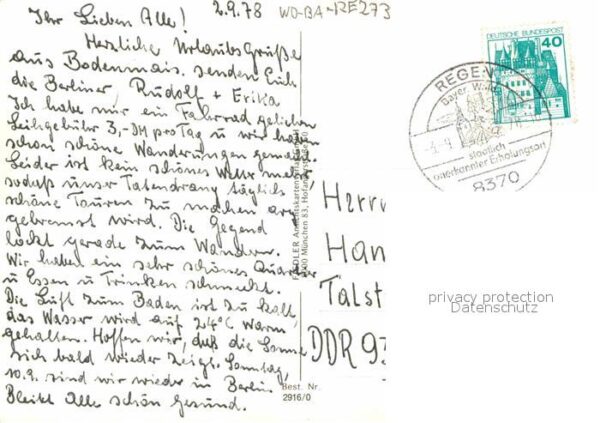 Ihr Lieben Alle! 2.9.78
WD-BA-RE273
Herzliche Urlaubsgrüße
aus Bodenmais senden Euch
die Berliner, Rudolf + Erika
Ich habe mir ein Fahrrad geliehen
Leihgebühr 3,-DM pro Tag u wir haben
schon schöne Wanderungen gemacht.
Leider ist kein schönes Wetter mehr
sodaß unser Tatendrang täglich
schöne Touren zu machen arg
gebremst wird. Die Gegend
lockt gerade zum Wandern.
Wir haben ein sehr schönes Quartier
u Essen u Trinken schmeckt.
Die Luft zum Baden ist zu kalt,
das Wasser wird auf 24°C warm
gehalten. Hoffen wir, daß die Sonne
sich bald wieder zeigt. Sonntag,
10.9. sind wir wieder in Berlin
Bleibt Alle schön gesund.
8000 München 83,
Best. Nr.
2916/0
DEUTSCHE BUNDESPOST
40
REGEN
Bayer. Wald
staatlich
anerkannter Erholungsort
8370
Herrn
Han
Talst
DDR 93
privacy protection
Datenschutz